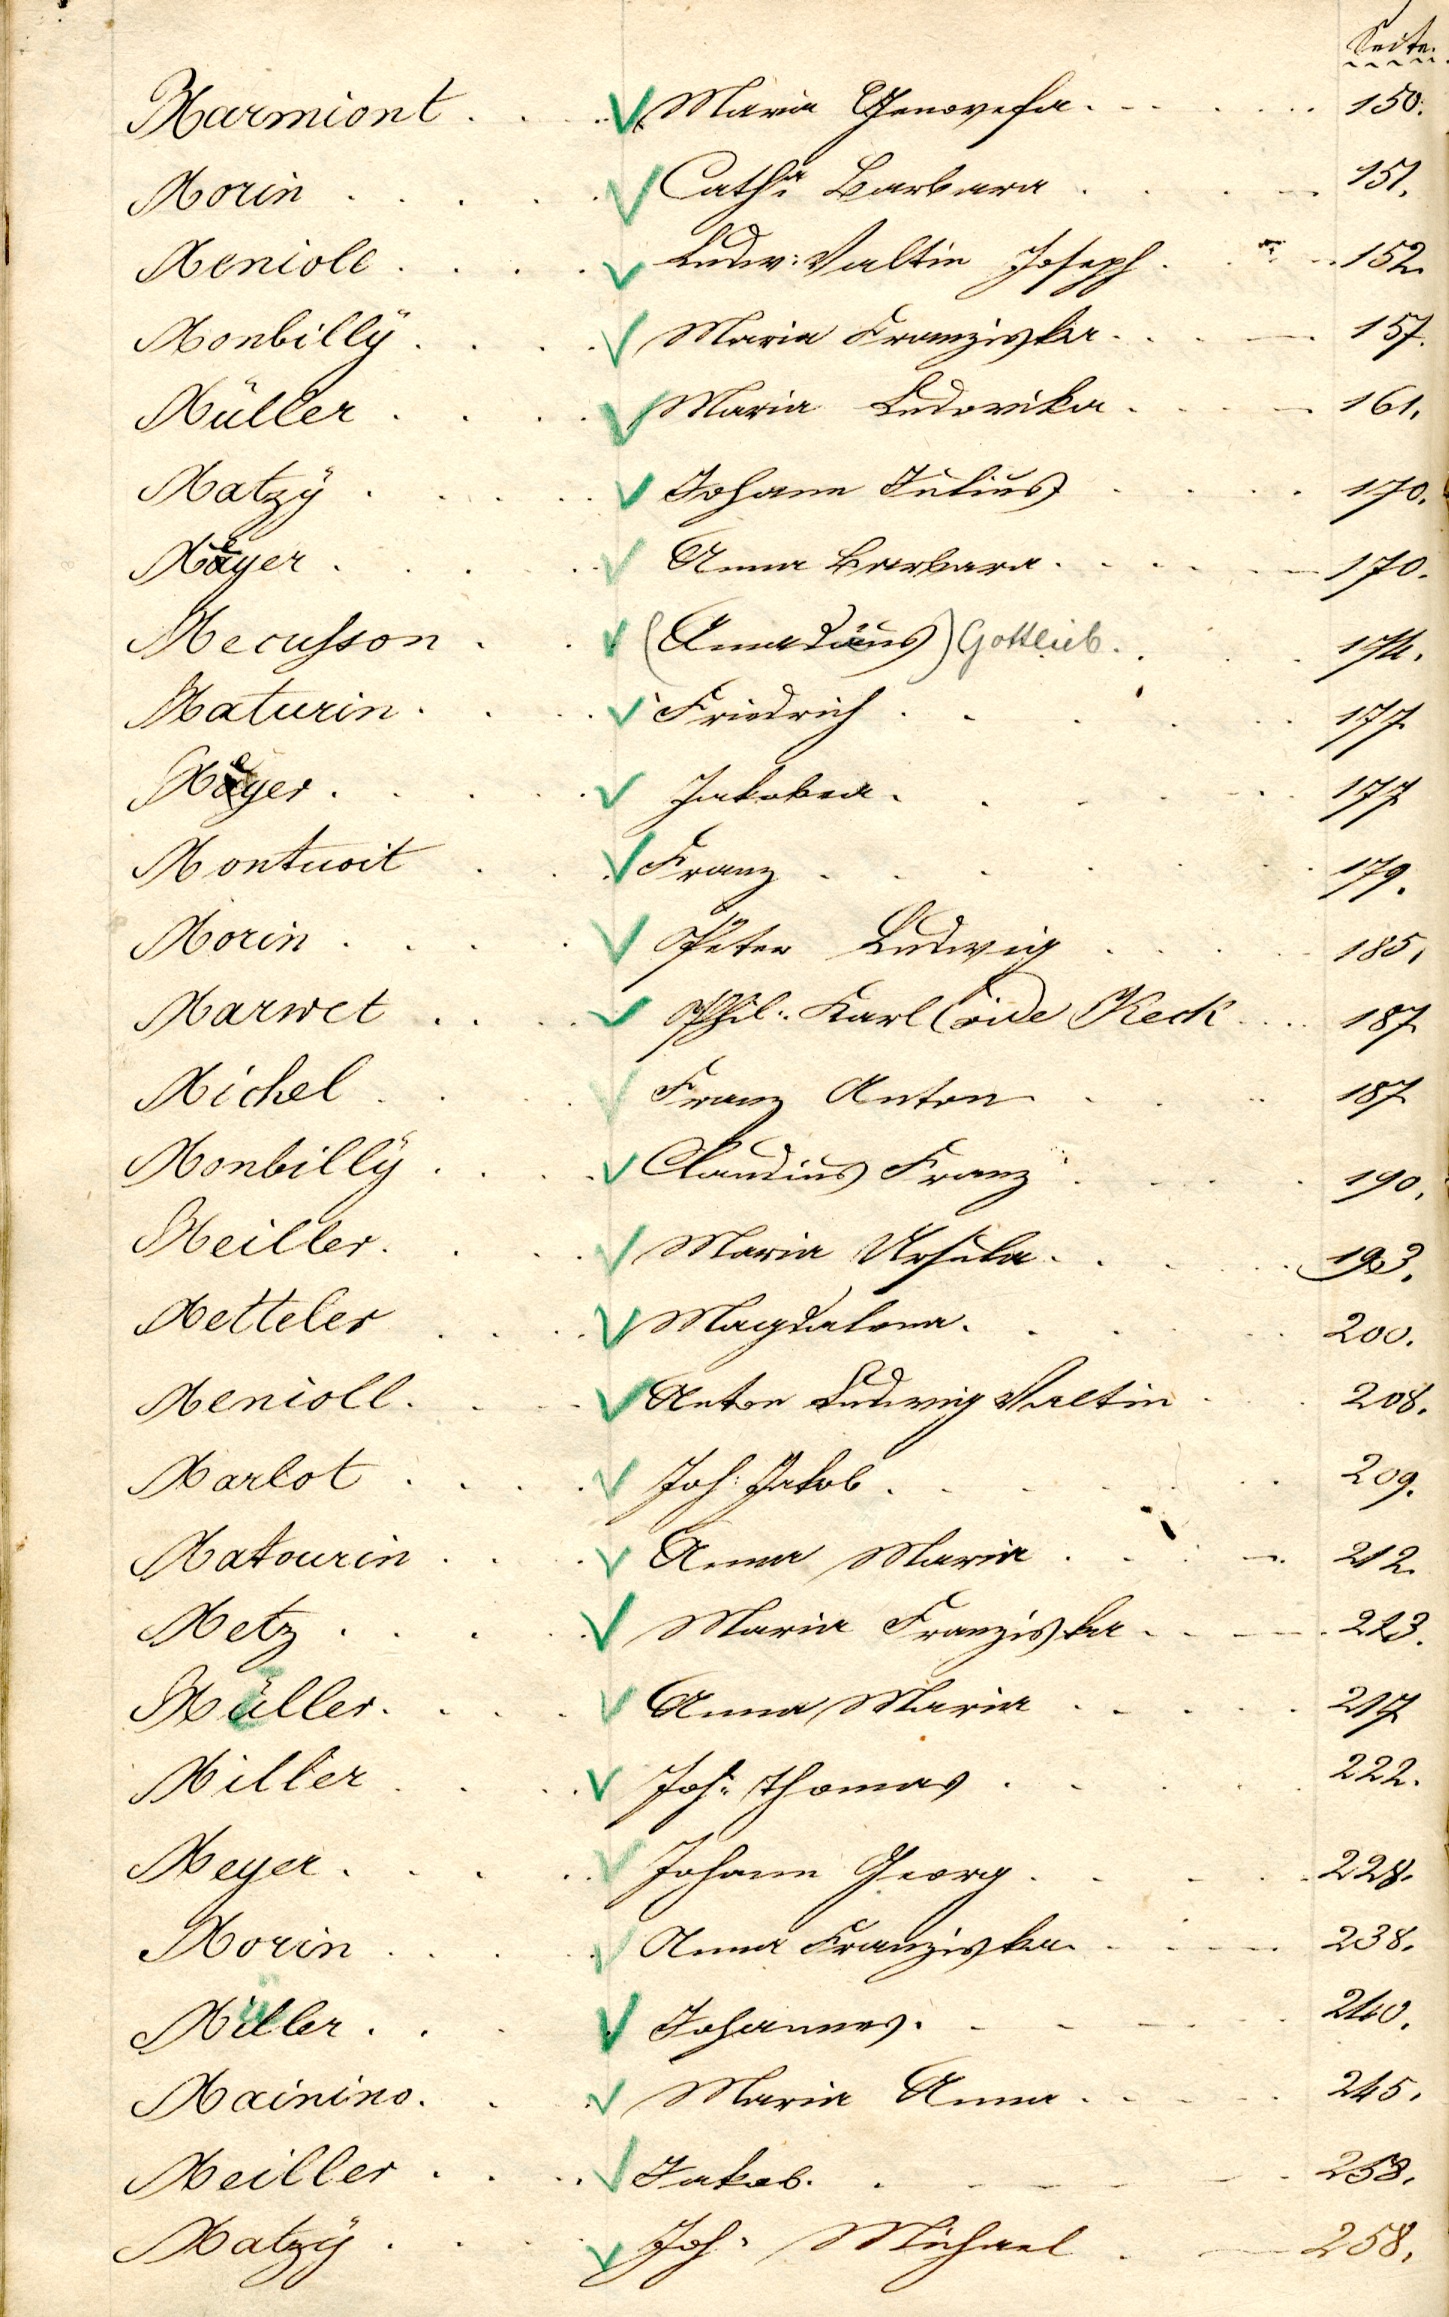 Seite.
Marmiont . . . . Maria Genovefa . . . . . . 150.
Morin . . . . . Cath:a Barbara . . . . . 151.
Meniole . . . . Ludw: Valtin Joseph . . . . 152.
Monbillÿ . . . . Maria Franziska . . . . . 157.
Müller . . . . Maria Ludovika . . . . . 161.
Matzÿ . . . . . Johann Julius . . . . 170.
Meyer . . . . . Anna Barbara . . . . . . 170.
Mecusson . . . (Amadäus) Gottlieb . . . . 174.
Maturin . . . . Friedrich . . . . . . 177.
Meyer . . . . . Jakobea . . . . . . 177.
Montuoit . . . Franz . . . . . . 179.
Morin . . . . Peter Ludwig . . . . 185.
Marwet . . . . Phil: Karl (vide Keck . . . 187
Michel . . . . Franz Anton . . . . 187
Monbillÿ . . . . Claudius Franz . . . . . 190.
Meiller . . . . Maria Ursula . . . . . 193.
Metteler . . . . Magdalena . . . . . . 200.
Menioll . . . . Anton Ludwig Valtin . . 208.
Marlot . . . . Joh: Jakob . . . . . . 209.
Matourin . . . . Anna Maria . . . . . 212.
Metz . . . . . Maria Franziska . . . . 223.
Müller . . . . Anna Maria . . . . . 217.
Miller . . . . Joh: Thomas . . . . . 222.
Meyer . . . . . Johann Georg . . . . . 228.
Morin . . . . Anna Franziska . . . . . 238.
Miller . . . . Johannes . . . . . . 240.
Mainino . . . Maria Anna . . . . . 245.
Meiller . . . . Jakob . . . . . . 258.
Matzÿ . . . . Joh: Michael . . . 258.